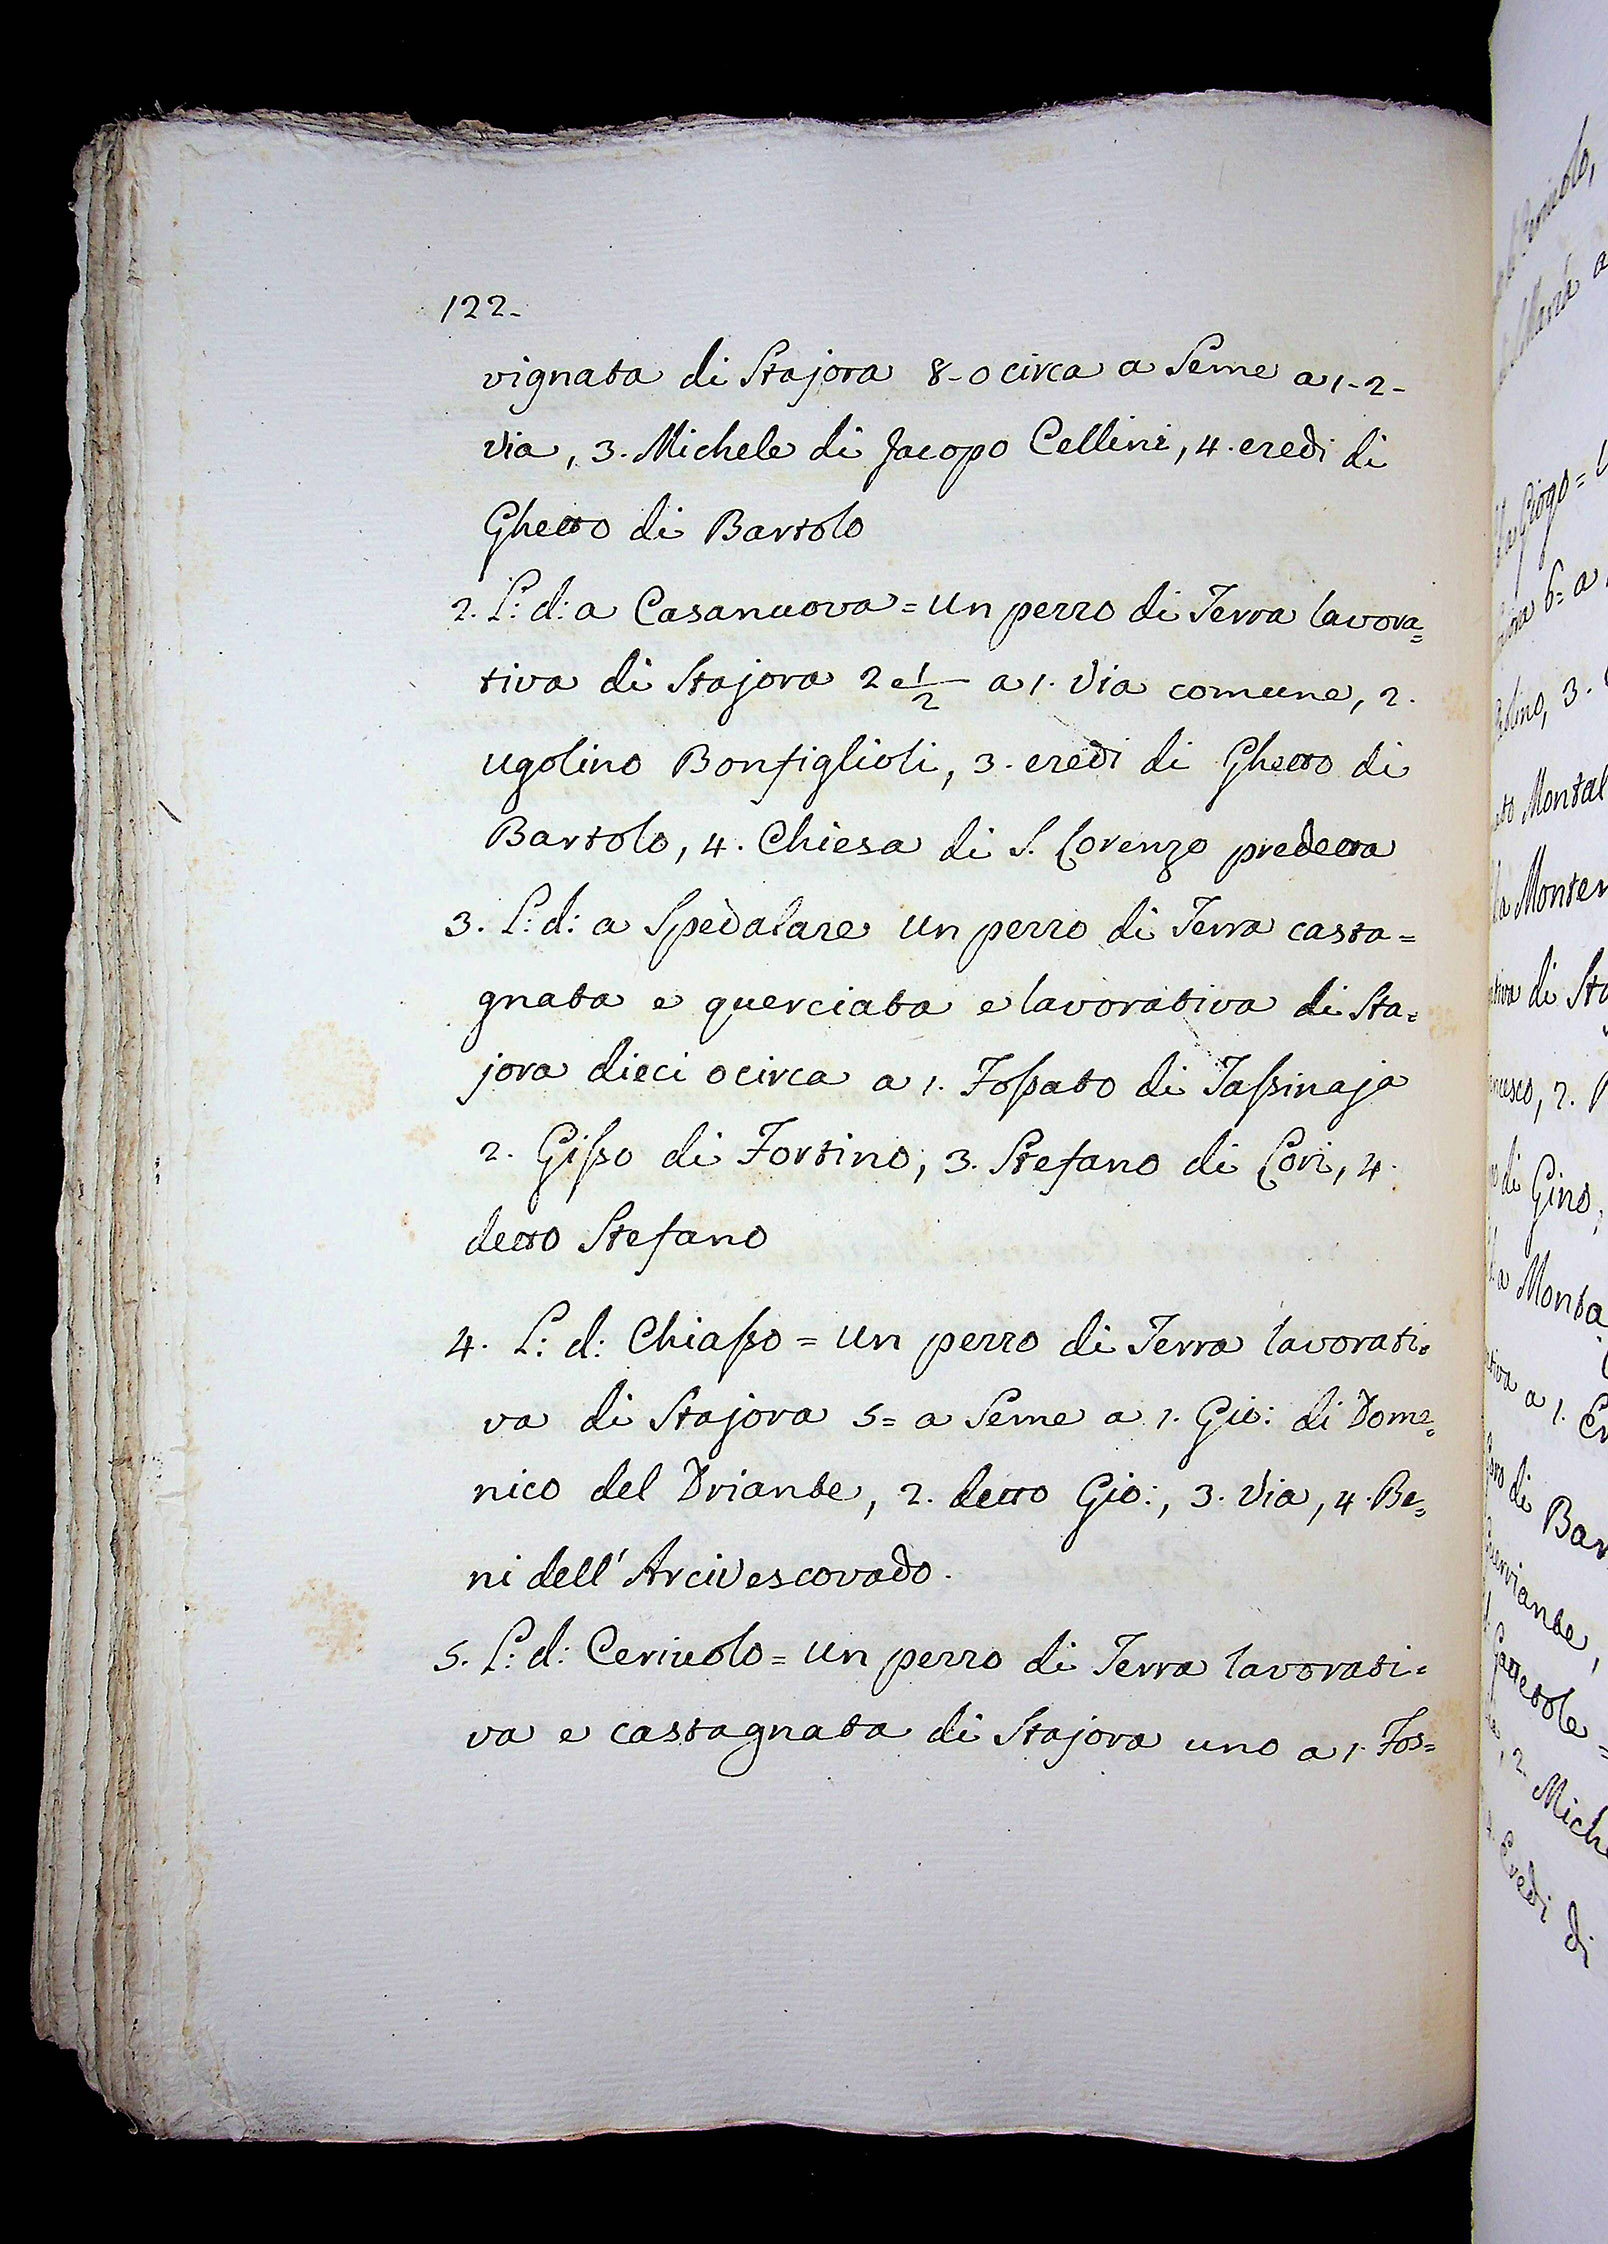 122.
vignata di Stajora 8-o circa a Seme a 1-2-
via, 3. Michele di Jacopo Cellini, 4. eredi di
Ghetto di Bartolo
2. L: d: a Casanuova = un pezzo di Terra lavora=
tiva di Stajora 2 e 1/2 a 1. via comune, 2.
Ugolino Bonfiglioli, 3. eredi di Ghetto di
Bartolo, 4. Chiesa di S. Lorenzo predetta
3. L: d: a Spedalare un pezzo di Terra casta=
gnata e querciata e lavorativa di Sta=
jora dieci o circa a 1. Fossato di Tassinaja
2. Gisso di Fortino, 3. Stefano di Cori, 4.
detto Stefano
4. L: d: Chiasso = un pezzo di Terra lavorati=
va di Stajora 5= a Seme a 1. Gio: di Dome=
nico del Driante, 2. detto Gio:, 3. via, 4. Be=
ni dell' Arcivescovado.
5. L: d: Ceriuolo = un pezzo di Terra lavorati=
va e castagnata di Stajora uno a 1. Fos=
Giogo =
6= a
3.
Montal
di
2.
di Gino,
a Monta
a 1.
di Bar
2. Miche
Eredi di